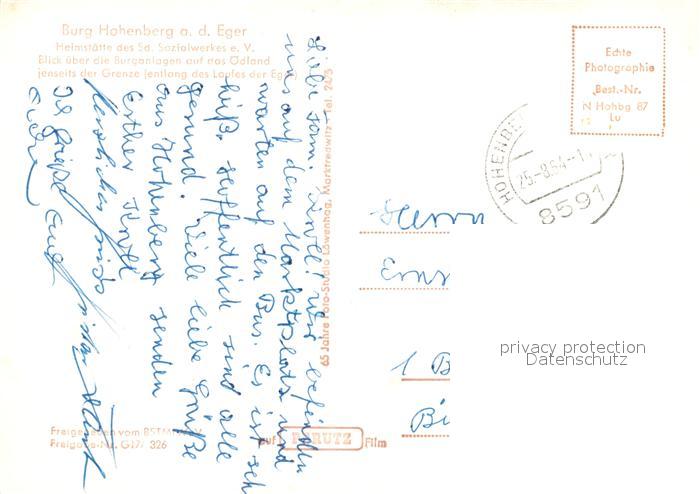 Burg Hohenberg a. d. Eger
Heimstätte des Sd. Sozialwerkes e. V.
Blick über die Burganlagen auf das Ödland
jenseits der Grenze (entlang des Laufes der Eger)
Echte
Photographie
Best.-Nr.
N Hohbg 87
Lu
HOHENBE
25.-8.64-1
8591
Liebe Fam. Wir befinden
uns auf dem Marktplatz und
warten auf den Bus. Es ist sehr
heiß. Hoffentlich sind alle
gesund. Viele liebe Grüße
aus Hohenberg senden
Esther
Herzlichen
Es grüßt Euch
65 Jahre Foto-Studio Löwenhag, Marktredwitz - Tel. 2
Herrn
Erns
1 B
Bi
privacy protection
Datenschutz
Freigegeben vom BSTM
Freigabe-Nr. G17/ 326
auf PERUTZ Film